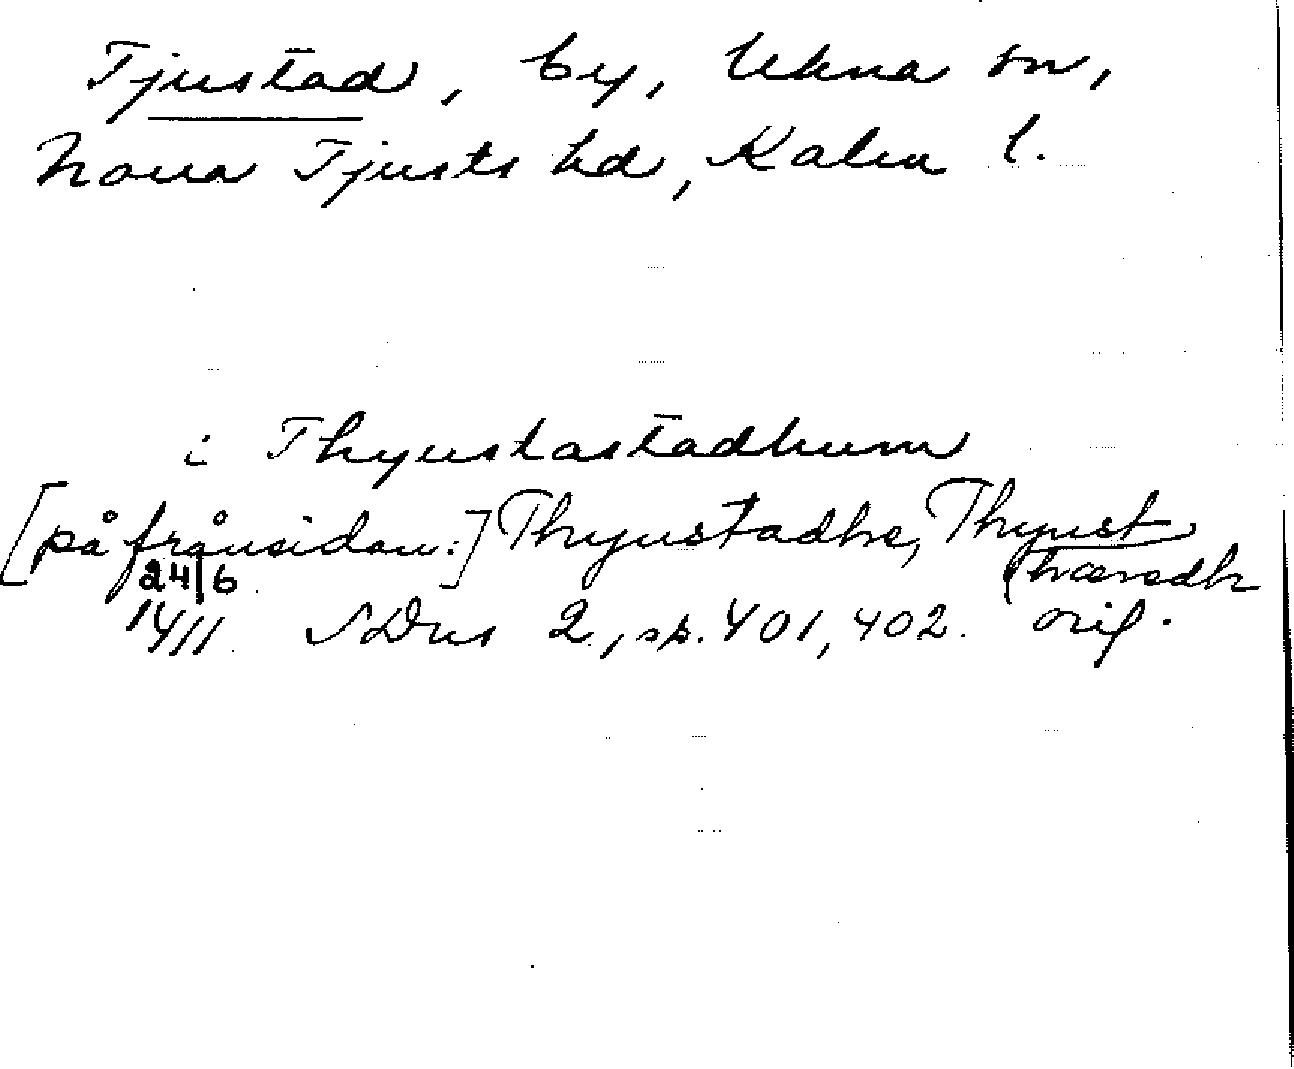 Tjustad, by, Ukna sn,
Norra Tjusts hd, Kalm l.
i Thyustastadhum
[på frånsidan:] Thyustadhe, Thyust
hæredh
24/6
14/11 SDns 2, sp. 401, 402. orig.